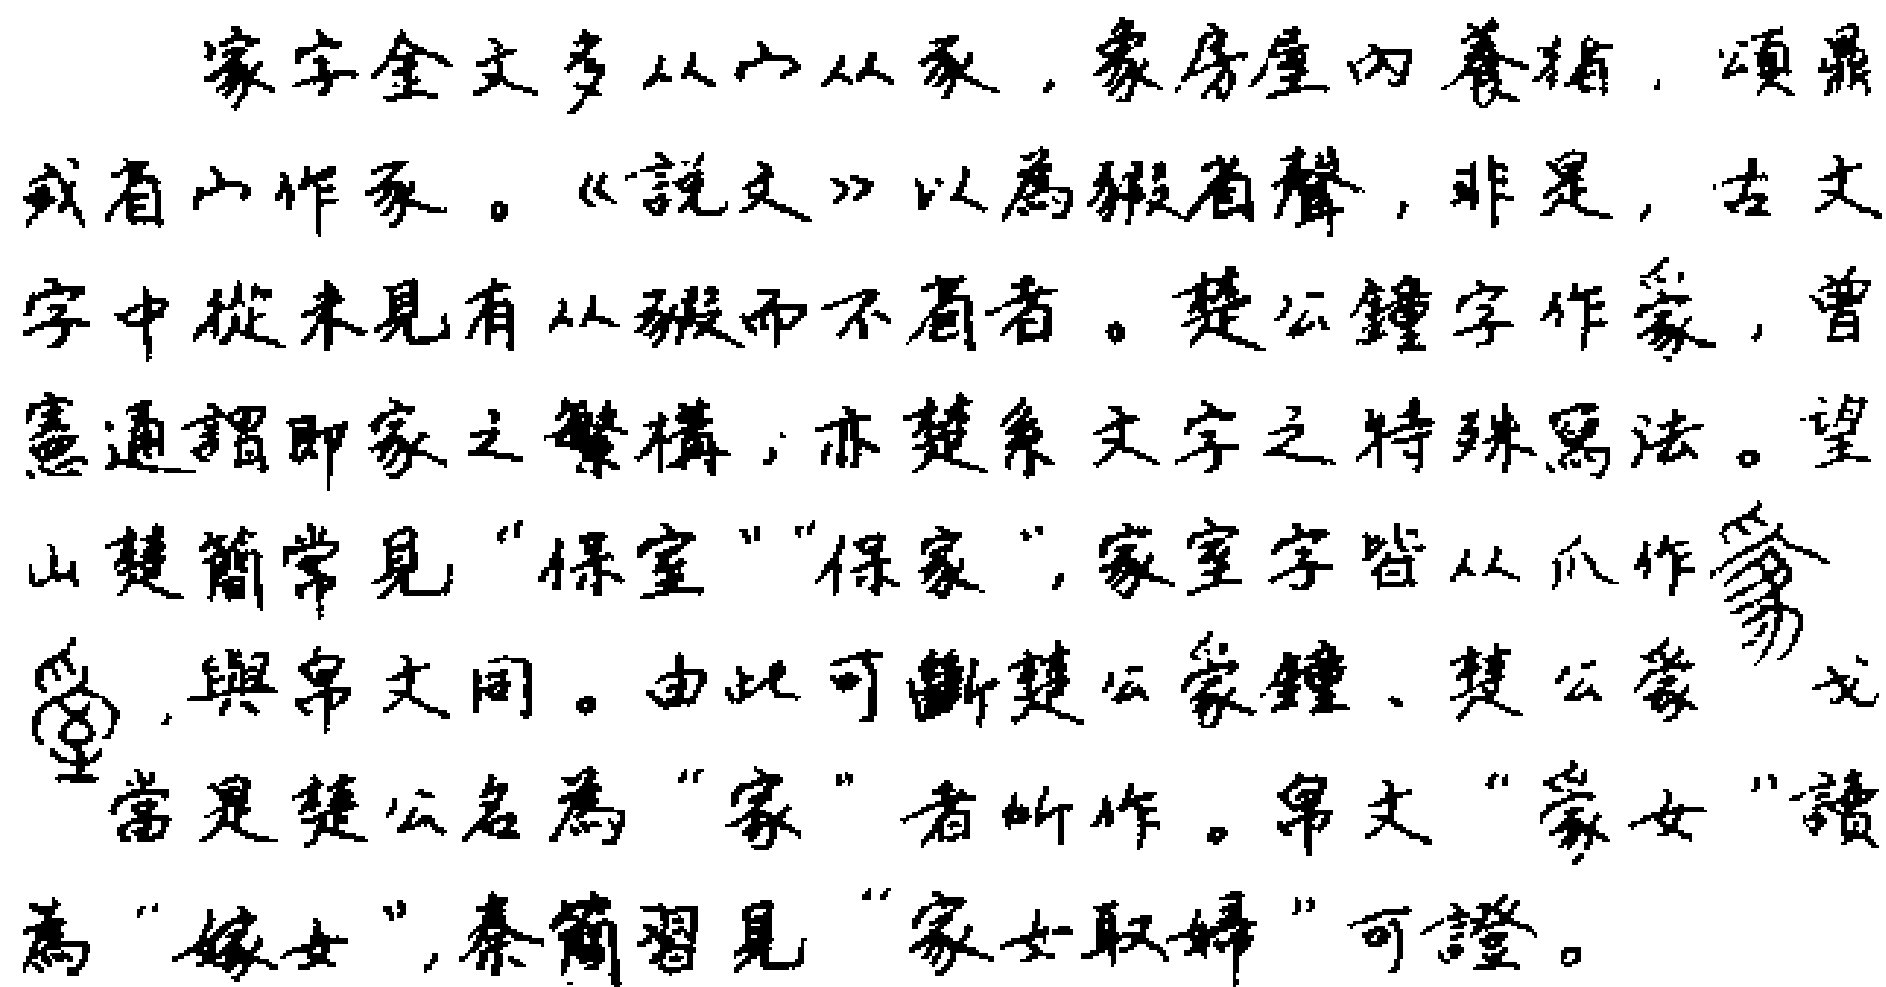 家字金文多从宀从豕，象房屋內養豬，頌鼎
或省宀作豕。《說文》以為豭省聲，非是，古文
字中從未見有从豭而不省者。楚公鐘字作𡩀，曾
憲通謂即家之繁構，亦楚系文字之特殊寫法。望
山楚簡常見“保室”“保家”，家室字皆从爪作
，與帛文同。由此可斷楚公鐘、楚公戈
當是楚公名為“家”者所作。帛文“女”讀
為“嫁女”，秦簡習見“家女取婦”可證。